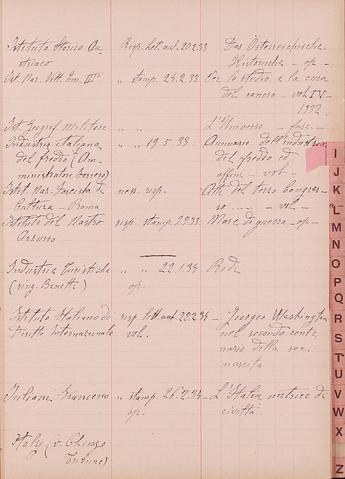 Istituto Storico Au- Resp. lett. aut. 20.2.33 Das Österreichische
striaco Historische - op -
Ist. Naz. Vitt. Em. III° " stamp. 24.2.33 Per lo studio e la cura
del cancro - vol. IV -
1932
Ist. Geograf. Militare " " L'Universo - fasc -
Industria italiana " 19.5.33 Annuario dell'industria
del freddo (Am- del freddo ed
ministratore affini - vol -
Istit. Naz. Fascista di ness. risp. Atti del terzo Congres-
Cultura - Roma so vol -
Istituto del Nastro risp. stamp. Mare di guerra - op -
Azzurro
Industria Turistica " " 22.1.34 Rodi
(ring. op.
Istituto Italiano di risp. lett. aut. 22.2.34 - Georges Washington
Diritto Internazionale vol. nel secondo cente
nario della sua
nascita
Giuliano Francesco " stamp. 26.2.34 - L'Italia nutrice di
op. civiltà
Italy (v. Chicago
Tribune)
I
J
K
L
M
N
O
P
Q
R
S
T
U
V
W
X
Z